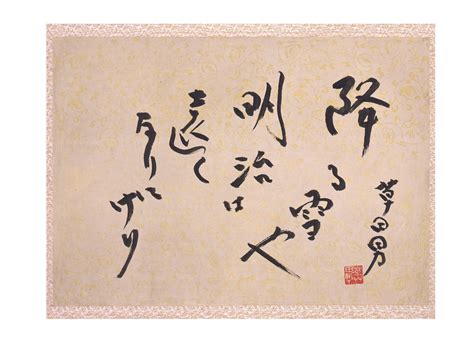 降る雪や
明治は
遠く
なりに
けり
草田男